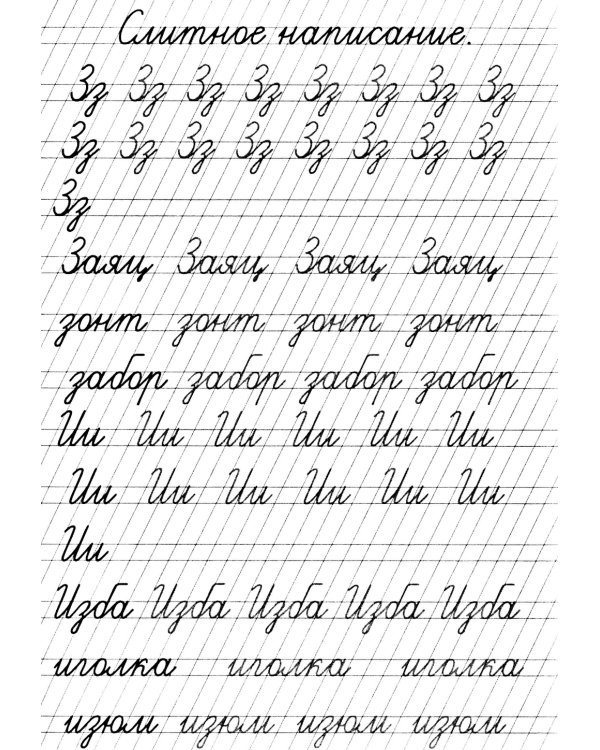 Слитное написание.
Зз Зз Зз Зз Зз Зз Зз Зз
Зз Зз Зз Зз Зз Зз Зз Зз
Зз
Заяц Заяц Заяц Заяц
зонт зонт зонт зонт
забор забор забор забор
Ии Ии Ии Ии Ии Ии
Ии Ии Ии Ии Ии Ии
Ии
Изба Изба Изба Изба Изба
иголка иголка иголка
изюм изюм изюм изюм